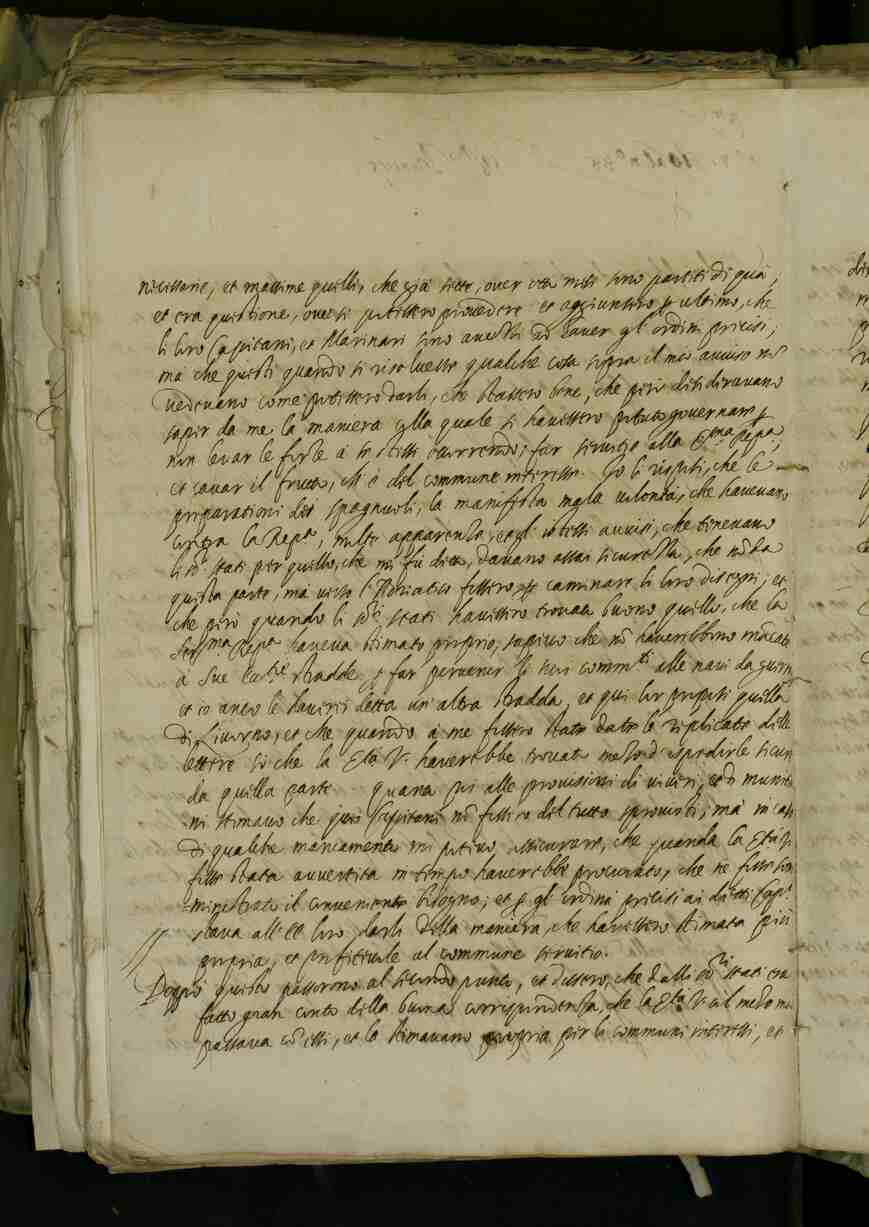 necessarie, et massime quelli, che già sette, over otto mesi sono partiti di quà,
et era questione, ove si potessero provedere et aggiunsero per ultimo, che
li loro Capitani, et Marinari sono avezzi di haver gl'ordini precisi,
mà che questi quando si risolvesse qualche cosa sopra il mio aviso nõ
vedevano come potessero darli, che stassero bene, che però desideravano
saper da me la maniera colla quale si havessero potuto governare per
non levar le forze à se stessi occorrendo, far servitio alla Ser.ma Rep.a,
et cavar il frutto, ch'è del commune interesse. Io li risposi, che le
preparationi dei Spagnuoli, la manifesta mala volontà, che havevano
contra la Rep.a, molto apparente, et gl'istessi avvisi, che tenevano
li SS.ri Stati per quello, che mi fù detto, davano assai sicurezza, che nõ da
questa parte, mà verso l'Adriatico fussero per caminare li loro dissegni, et
che però quando li SS.ri Stati havessero trovato buono quello, che la
Ser.ma Rep.a haveva stimato proprio, sapevo che nõ haverebbono mãcato
à Sue Ecc.ze strade per far pervenir li suoi comm.ti alle navi da guerra
et io anco le haverei detta un'altra strada, et qui lor proposi quella
di Livorno, et che quando à me fussero state date le riplicate delle
lettere sò che la Ser.tà V. haverebbe trovato modo d'espedirle sicure
da quella parte quanto poi alle provisioni di viveri, et di muniti=
ni stimavo che quei Capitani nõ fussero del tutto sprovisti, mà in caso
di qualche mancamento mi potevo assicurare, che quando la Ser.tà V.
fusse stata avvertita in tempo haverebbe procurato, che ne fusse som=
ministrato il conveniente bisogno, et per gl'ordini precisi ai detti Cap.ni
stava all'EE. loro darli della maniera, che havessero stimata più
propria, et profittevole al commune servitio.
Doppò questo passorono al secondo punto, et dissero, che dalli SS.ri Stati era
fatto gran conto della buona corrispondenza, che la Ser.tà V. col mezo mio
passava cõ essi, et la stimavano propria per li communi interessi, et